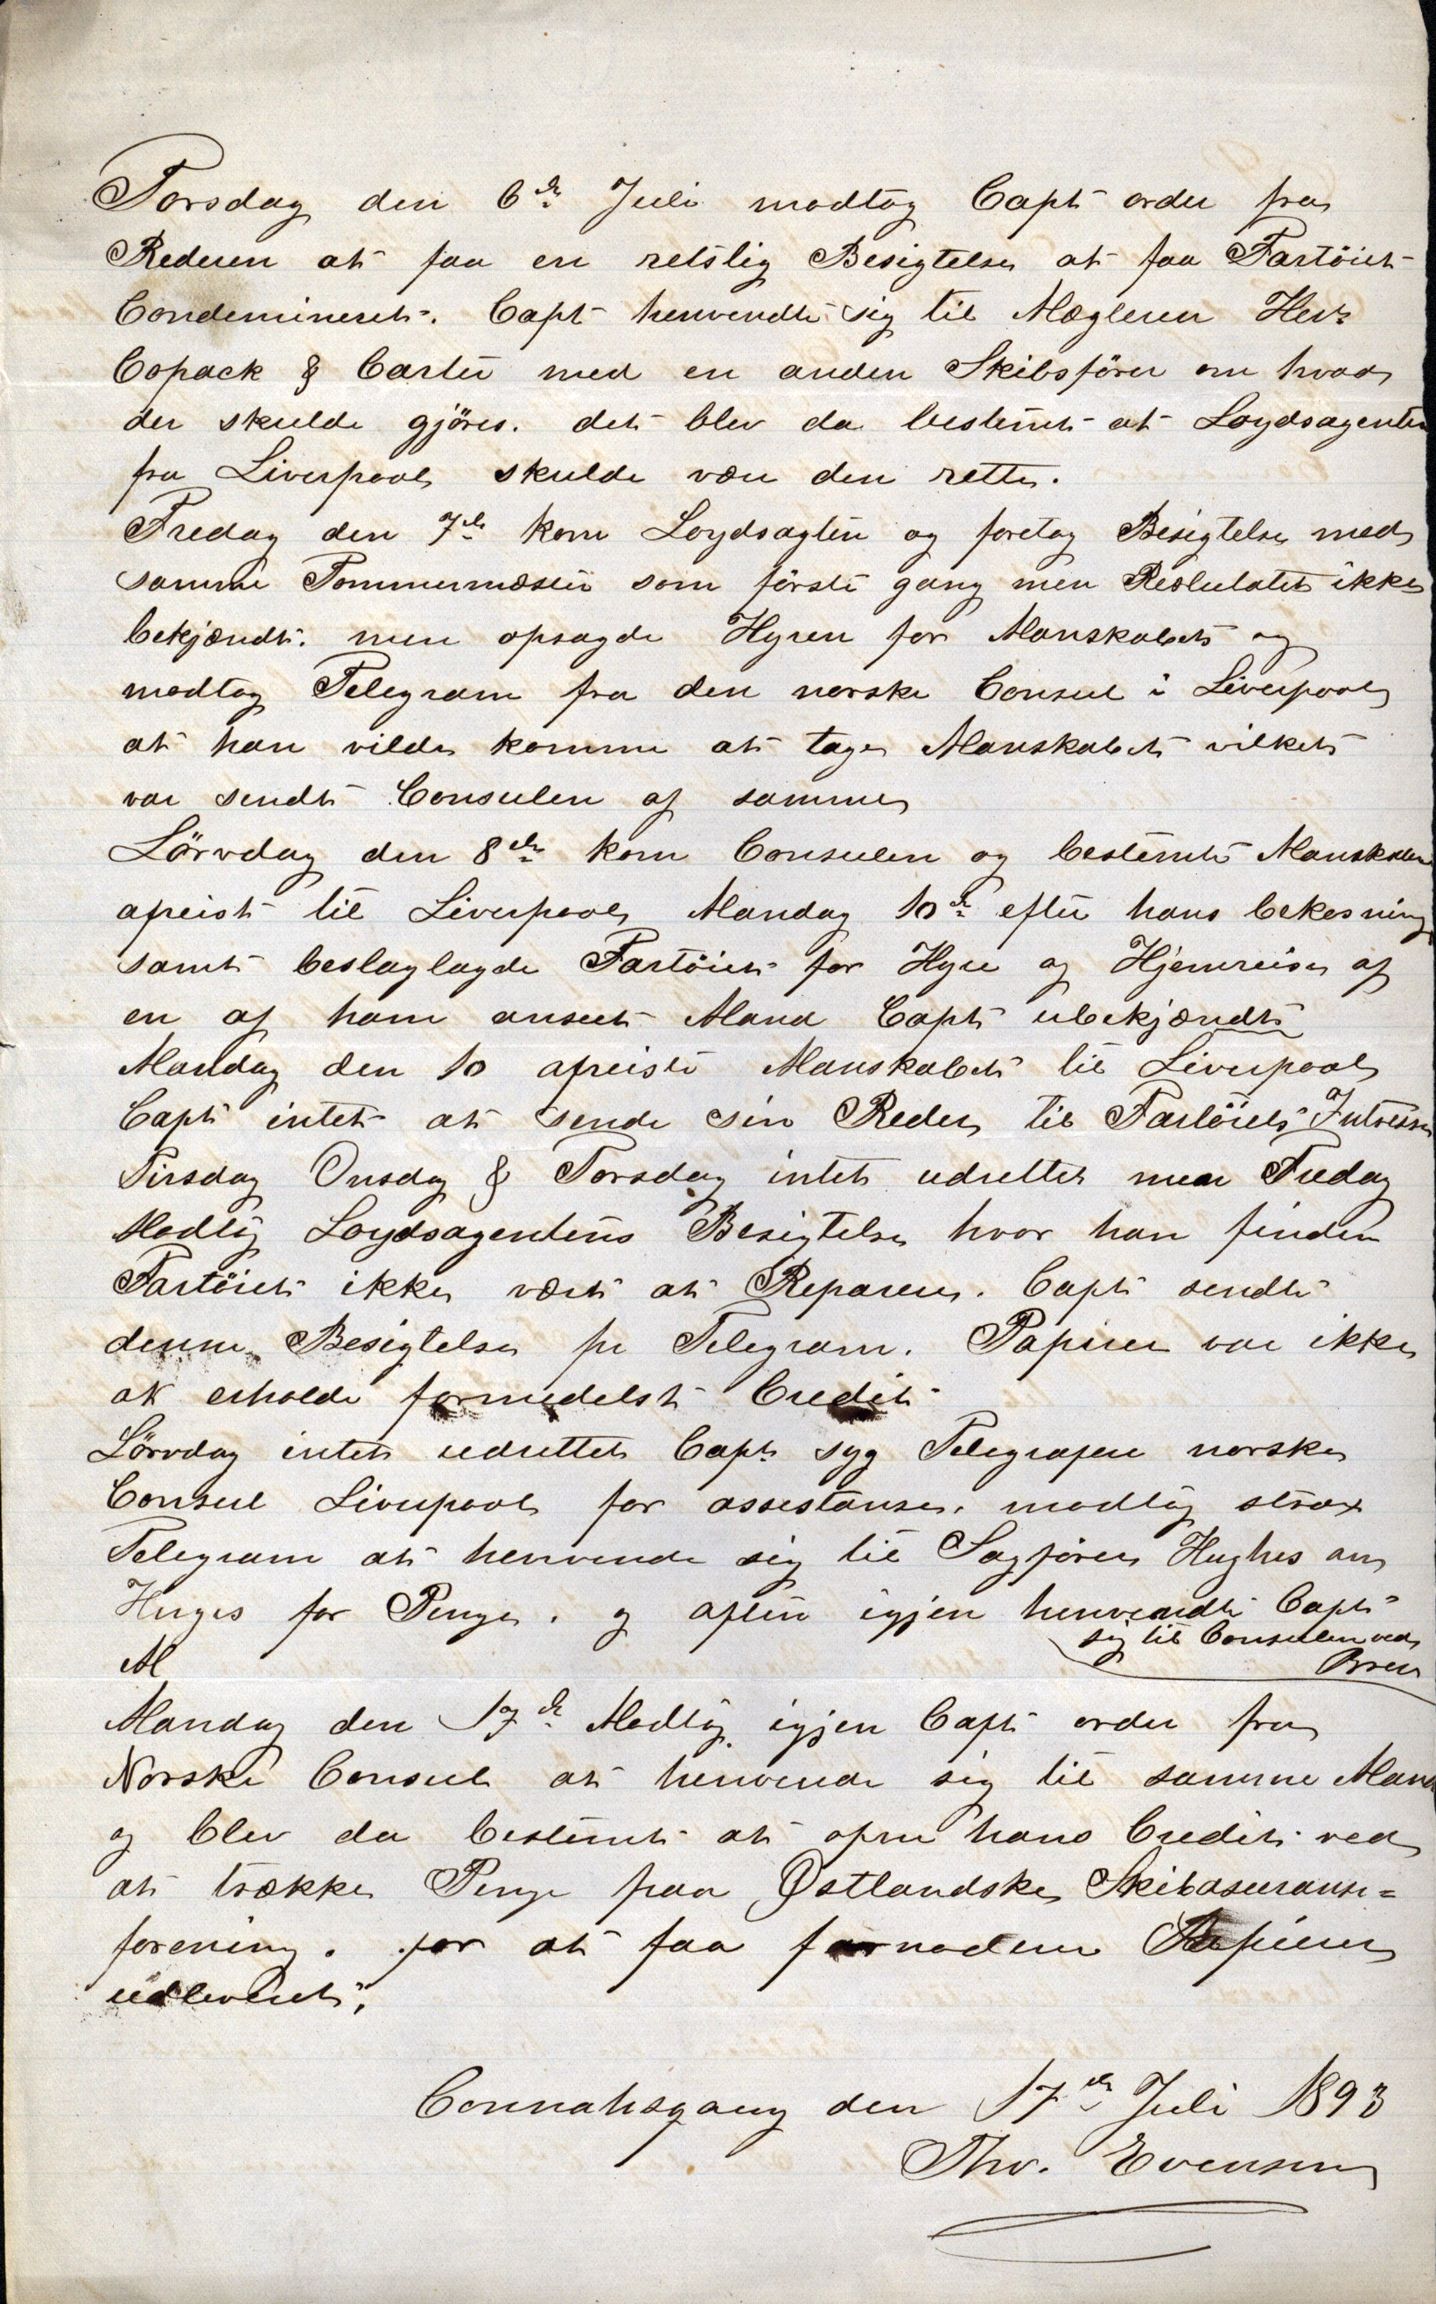 Torsdag den 6de Juli modtog Capt order fra
Rederen at faa en retslig Besigtelse at faa Fartöiet
Condemineret. Capt henvendte sig til Mægleren Herr
Copack & Carter med en anden Skibsförer om hvad
der skulde gjöres. det blev da bestemt at Loydsagenten
fra Liverpool skulde være den rette.
Fredag den 7de kom Loydsagten og foretog Besigtelse med
samme Tømmermæster som förste gang men Resultatet ikke
bekjændt. men opsagde Hyren for Manskabet og
modtog Telegram fra den norske Consul i Liverpool
at han vilde komme at tage Manskabet vilket
var sendt Consulen af samme
Lörvdag den 8de kom Consulen og bestemte Manskabet
afreist til Liverpool Mandag 10de efter hans bekosning
samt beslaglagde Fartöiet for Hyre og Hjemreise af
en af ham anseet Mand Capt ubekjændt
Mandag den 10 afreiste Manskabet til Liverpool
Capt intet at sende sin Reder til Fartöiets Intresse
Tirsdag Onsdag & Torsdag intet udrettet men Fredag
Modtog Loydsagentens Besigtelse hvor han finder
Fartöiet ikke vært at Reparere. Capt sendte
denne Besigtelse pr Telegram. Papirer var ikke
at erholde formedelst Credit
Lörvdag intet udrettet Capt syg Telegrafere norske
Consul Liverpool for assestanse. modtog strax
Telegram at henvende sig til Sagförer Hughes an
Huges for Penge. og aften igjen henvendte Capt
sig til Consulen ved
Brev
M
Mandag den 17de Modtog igjen Capt order fra
Norske Consul at henvende sig til samme Mand
og blev da bestemt at opne hans Credit ved
at trække Penge paa Østlandske Skibasuranse=
forening. for at faa fornødene Papirer
udleveret.
Connahsqauy den 17de Juli 1893
Thv. Evensen